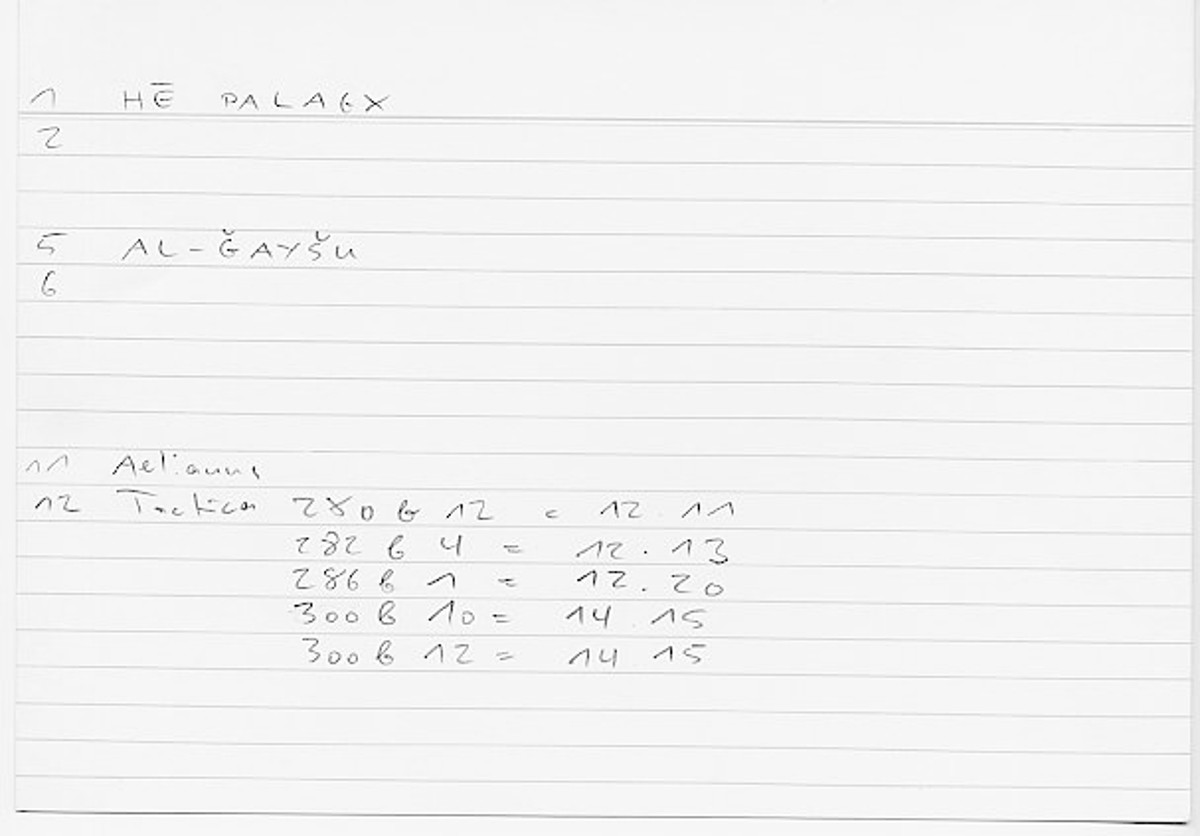 1 HĒ PALAGX
2
5 AL-ǦAYŠU
6
11 Aelianus
12 Tactica 280 b 12 = 12.11
282 b 4 = 12.13
286 b 1 = 12.20
300 b 10 = 14.15
300 b 12 = 14.15